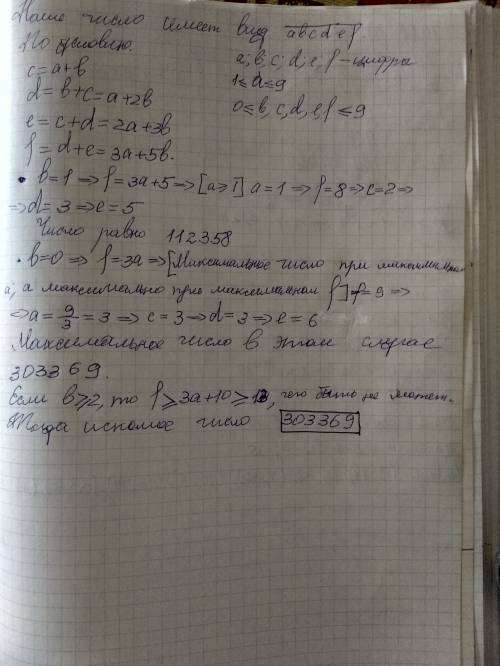 Наше число имеет вид abcdef.
По условию:
a; b; c; d; e, f – цифра
c=a+b
1≤a≤9
d=b+c=a+2b
0≤b,c,d,e,f≤9
e=c+d=2a+3b
f=d+e=3a+5b.
• b=1⇒f=3a+5⇒[a≥1] a=1⇒f=8⇒c=2⇒
⇒d=3⇒e=5
Число равно 112358
• b=0⇒f=3a⇒[Максимальное число при максимальном
a, а максимально при максимальном f] f=9⇒
⇒a=9/3=3⇒c=3⇒d=3⇒e=6
Максимальное число в этом случае
303369.
Если b≥2, то f≥3a+10≥13, чего быть не может.
Тогда искомое число 303369